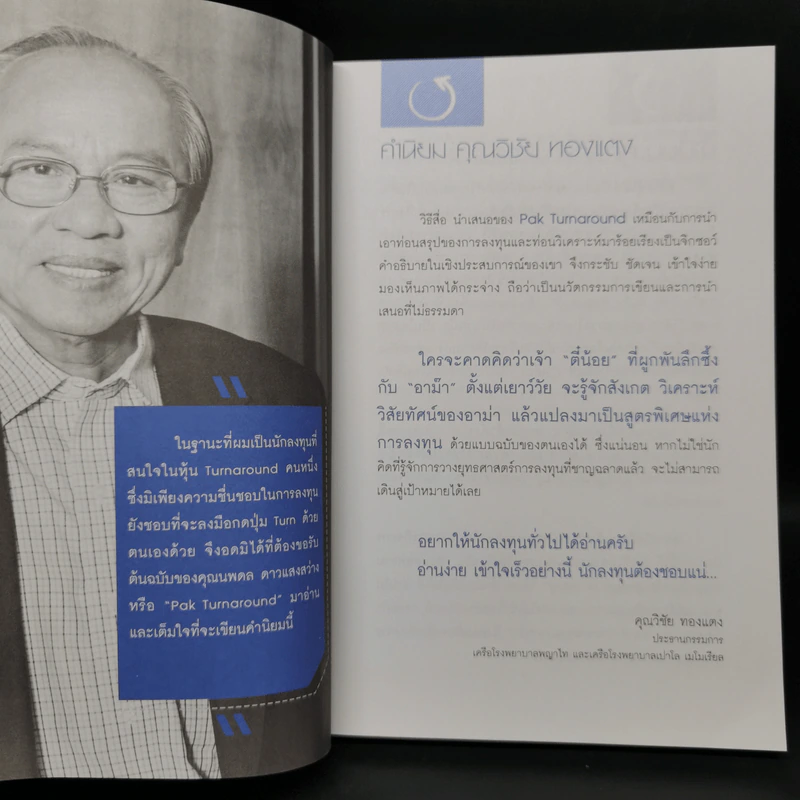 ในฐานะที่ผมเป็นนักลงทุนที่
สนใจในหุ้น Turnaround คนหนึ่ง
ซึ่งมิเพียงความชื่นชอบในการลงทุน
ยังชอบที่จะลงมือกดปุ่ม Turn ด้วย
ตนเองด้วย จึงอดมิได้ที่ต้องขอรับ
ต้นฉบับของคุณนพดล ดาวแสงสว่าง
หรือ “Pak Turnaround” มาอ่าน
และเต็มใจที่จะเขียนคำนิยมนี้
คำนิยม คุณวิชัย ทองแตง
วิธีสื่อ นำเสนอของ Pak Turnaround เหมือนกับการนำ
เอาท่อนสรุปของการลงทุนและท่อนวิเคราะห์มาร้อยเรียงเป็นจิกซอว์
คำอธิบายในเชิงประสบการณ์ของเขา จึงกระชับ ชัดเจน เข้าใจง่าย
มองเห็นภาพได้กระจ่าง ถือว่าเป็นนวัตกรรมการเขียนและการนำ
เสนอที่ไม่ธรรมดา
ใครจะคาดคิดว่าเจ้า “ตี๋น้อย” ที่ผูกพันลึกซึ้ง
กับ “อาม๊า” ตั้งแต่เยาว์วัย จะรู้จักสังเกต วิเคราะห์
วิสัยทัศน์ของอาม่า แล้วแปลงมาเป็นสูตรพิเศษแห่ง
การลงทุน ด้วยแบบฉบับของตนเองได้ ซึ่งแน่นอน หากไม่ใช่นัก
คิดที่รู้จักการวางยุทธศาสตร์การลงทุนที่ชาญฉลาดแล้ว จะไม่สามารถ
เดินสู่เป้าหมายได้เลย
อยากให้นักลงทุนทั่วไปได้อ่านครับ
อ่านง่าย เข้าใจเร็วอย่างนี้ นักลงทุนต้องชอบแน่...
คุณวิชัย ทองแตง
ประธานกรรมการ
เครือโรงพยาบาลพญาไท และเครือโรงพยาบาลเปาโล เมโมเรียล